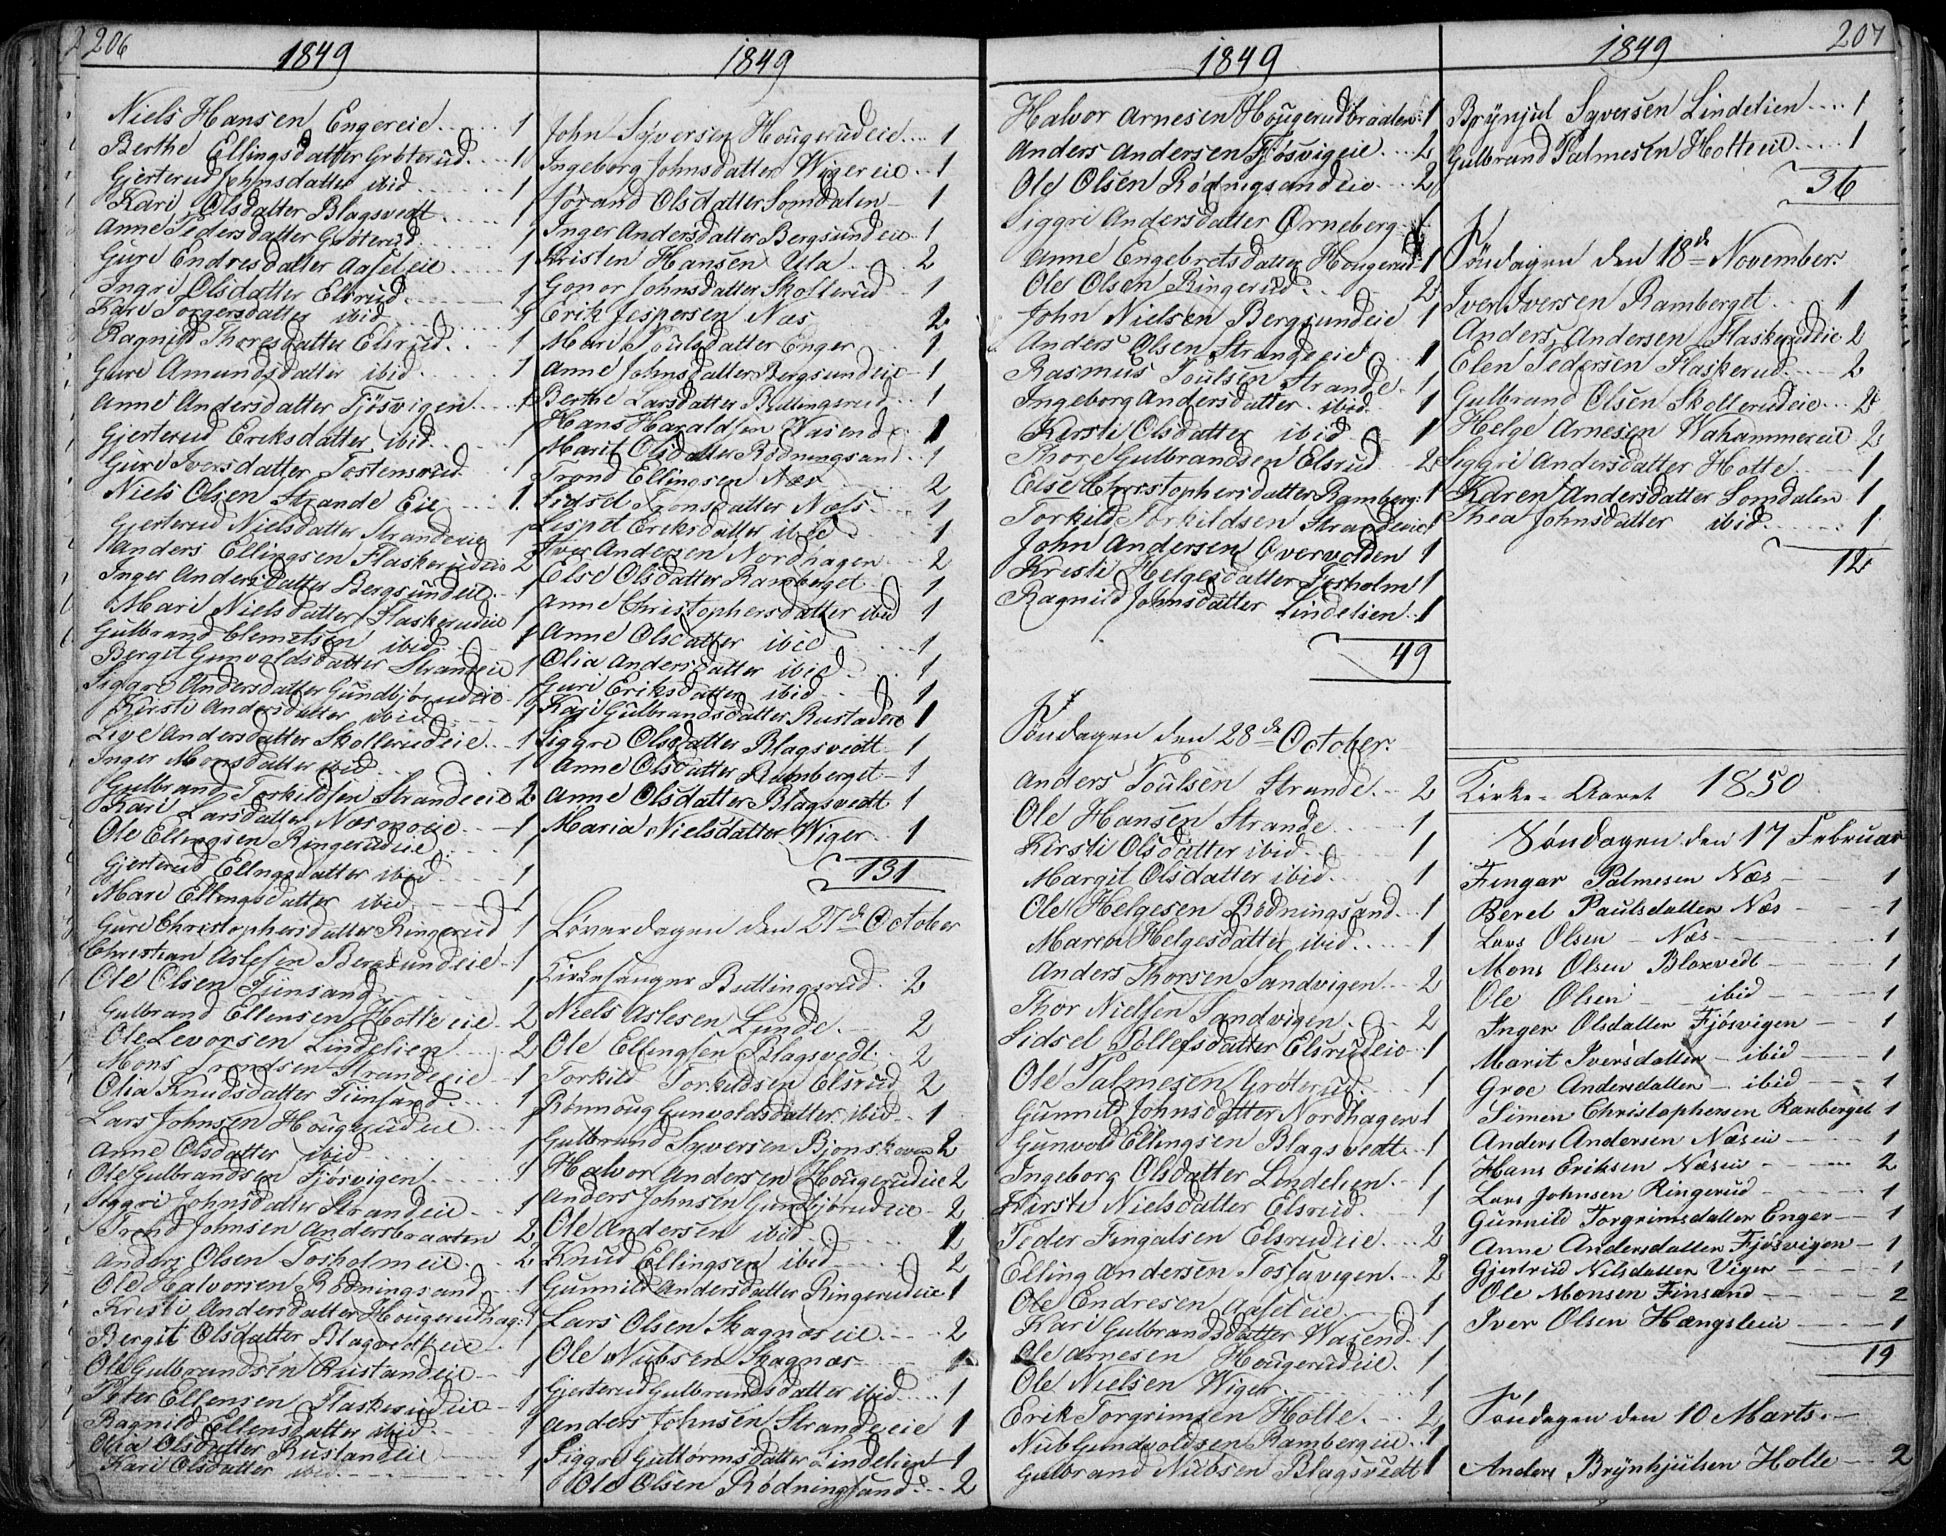 206
1849
Niels Hansen Engereie 1
Berthe Ellingsdatter Grøterud 1
Gjerterud Johnsdatter ibid 1
Kari Olsdatter Blagsvedt 1
Anne Pedersdatter Grøterud 1
Guri Endresdatter Aaseteie 1
Ingri Olsdatter Elsrud 1
Kari Torgersdatter ibid 1
Ragnild Thoresdatter Elsrud 1
Guri Amundsdatter ibid 1
Anne Andersdatter Fjösvigen 1
Gjerterud Eriksdatter ibid 1
Guri Iversdatter Tostensrud 1
Niels Olsen Strande Eie 1
Gjerterud Nielsdatter Strandeeie 1
Anders Ellingsen Flaskerudeie 2
Inger Andersdatter Bergsundeie 1
Mari Nielsdatter Flaskerudeie 1
Gulbrand Clemetsen ibid 1
Bergit Gunvoldsdatter Strandeeie 1
Siggri Andersdatter Gundbjørudeie 1
Kirsti Andersdatter ibid 1
Live Andersdatter Skollerudeie 1
Inger Monsdatter ibid 1
Gulbrand Torkildsen Strandeeie 2
Kari Larsdatter Næsmoeie 1
Ole Ellingsen Ringerudeie 1
Gjerterud Ellingsdatter ibid 1
Mari Ellingsdatter ibid 1
Guri Christophersdatter Ringerud 1
Christian Aslesen Bergsundeie 1
Ole Olsen Finsand 1
Gulbrand Ellensen Holteeie 2
Ole Levorsen Lindelien 2
Mons Trondsen Strandeeie 1
Olia Knudsdatter Finsand 1
Lars Johnsen Hougerudeie 1
Anne Olsdatter ibid 1
Ole Gulbrandsen Fjösvigen 1
Siggri Johnsdatter Strandeeie 1
Trond Johnsen Andersbraaten 2
Anders Olsen Tosholmeie 2
Ole Halvorsen Rödningsand 1
Kristi Andersdatter Hougerudhag: 1
Bergit Olsdatter Blagsvedteie 1
Ole Gulbrandsen Rustandeie 1
Peter Ellensen Flaskerudeie 1
Ragnild Ellensdatter ibid 1
Olia Olsdatter Rustandeie 1
Kari Olsdatter ibid 1
1849
John Syversen Hougerudeie 1
Ingeborg Johnsdatter Wigereie 1
Jörand Olsdatter Somdalen 1
Inger Andersdatter Bergsundeie 1
Kristen Hansen Ula 2
Gonor Johnsdatter Skollerud 1
Erik Jespersen Næs 2
Mari Poulsdatter Enger 1
Anne Johnsdatter Bergsundeie 1
Berthe Larsdatter Buttingsrud 1
Hans Haraldsen Wasende 1
Marit Olsdatter Rödningsand 1
Trond Ellingsen Næs 2
Sidsel Tronsdatter Næss 1
Lispet Eriksdatter ibid 1
Iver Andersen Nordhagen 2
Else Olsdatter Ramberget 1
Anne Christophersdatter ibid 1
Anne Olsdatter ibid 1
Olia Andersdatter ibid 1
Guri Eriksdatter ibid 1
Kari Gulbrandsdatter Rustadeie 1
Siggri Olsdatter Blagsvedt 1
Anne Olsdatter Ramberget 1
Anne Olsdatter Blagsvedt 1
Maria Nielsdatter Wiger 1
131
Løverdagen den 27de October
Kirkesanger Buttingsrud 2
Niels Aslesen Lunde 2
Ole Ellingsen Blagsvedt 2
Torkild Torkildsen Elsrud 2
Rönnoug Gunvoldsdatter ibid 1
Gulbrand Syversen Bjonskoven 2
Halvor Andersen Hougerudeie 2
Anders Johnsen Gunbjørudeie 2
Ole Andersen ibid 2
Knud Ellingsen ibid 2
Gunnild Andersdatter Ringerudeie 1
Lars Olsen Skagnæseie 2
Ole Nubsen Skagnæs 1
Gjerterud Gulbrandsdatter ibid 1
Anders Johnsen Strandeeie 1
Siggri Guttormsdatter Lindelien 1
Ole Olsen Rödningsand 2
1849
Halvor Arnesen Hougerudbraaten 1
Anders Andersen Fjøsvigeie 2
Ole Olsen Rödnigsandeie 2
Siggri Andersdatter Ørneberg 1
Anne Engebretsdatter Hougerud 1
Ole Olsen Ringerud 2
John Nielsen Bergsundeie 1
Anders Olsen Strandeeie 1
Rasmus Poulsen Strande 1
Ingeborg Andersdatter ibid 1
Kirsti Olsdatter ibid 1
Thore Gulbrandsen Elsrud 2
Else Christophersdatter Ramberg: 1
Torkild Torkildsen Strandeeie 1
John Andersen Overvolden 1
Kristi Helgesdatter Tosholm 1
Ragnild Johnsdatter Lindelien 1
49
Søndagen den 28de October.
Anders Poulsen Strande 2
Ole Hansen Strande 1
Kirsti Olsdatter ibid 1
Margit Olsdatter ibid 1
Ole Helgesen Rödningsand 1
Maren Helgesdatter ibid 1
Anders Thorsen Sandvigen 2
Thor Nielsen Sandvigen 2
Sidsel Tollefsdatter Elsrudeie 1
Ole Palmesen Grøterud 1
Gunnild Johnsdatter Nordhagen 1
Gunvold Ellingsen Blagsvedt 1
Ingeborg Olsdatter Lindelien 1
Kirsti Nielsdatter Elsrud 1
Peder Fingalsen Elsrudeie 2
Elling Andersen Tossavigen 2
Ole Endresen Aaseteie 1
Kari Gulbrandsdatter Wasend 1
Ole Arnesen Hougerudeie 1
Ole Nielsen Wiger 1
Erik Torgrimsen Holte 2
Nub Gundvoldsen Rambergeie 1
Gulbrand Nubsen Blagsvedt 1
207
1849
Brynjul Syversen Lindelien 1
Gulbrand Palmesen Holteeie 1
36
Søndagen den 18de November.
Iver Iversen Ramberget 1
Anders Andersen Flaskerudeie 2
Elen Pedersen Flaskerud 2
Gulbrand Olsen Skollerudeie 2
Helge Arnesen Wahammereie 2
Siggri Andersdatter Holte 1
Karen Andersdatter Somdalen 1
Thea Johnsdatter ibid 1
12
Kirke-Aaret 1850
Søndagen den 17 Februar
Fingar Palmesen Næs 1
Beret Paulsdatter Næs 1
Lars Olsen Næs 1
Mons Olsen Bloxvedt 1
Ole Olsen ibid 1
Inger Olsdatter Fjösvigen 1
Marit Iversdatter ibid 1
Groe Andersdatter ibid 1
Simen Christophersen Ramberget 1
Anders Andersen Næseie 1
Hans Eriksen Næseie 2
Lars Johnsen Ringerud 1
Gunnild Torgrimsdatter Enger 1
Anne Andersdatter Fjösvigen 1
Gjertrud Nilsdatter Viger 1
Ole Monsen Finsand 2
Iver Olsen Hængsleeie 1
19
Søndagen den 10 Marts.
Anders Brynhjulsen Holte 2